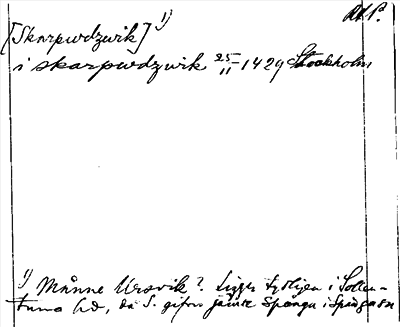 RAP.
[Skarpwdzwik] 1)
i skarpwdzwik 25/11 1429 Stockholm
1) Månne Ursvik? Ligger tydligen i Sollen-
tuna hd, då S. gifvs jämte Spånga i Spånga sn